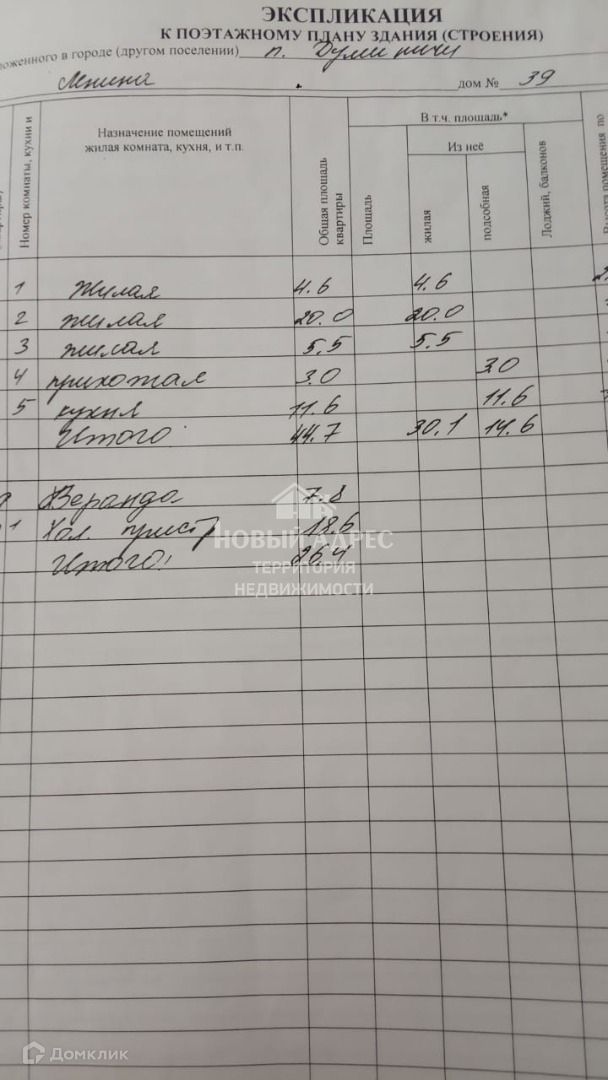 ЭКСПЛИКАЦИЯ
К ПОЭТАЖНОМУ ПЛАНУ ЗДАНИЯ (СТРОЕНИЯ)
оложенного в городе (другом поселении) п. Думиничи
Ленина дом № 39
Номер комнаты, кухни и
Назначение помещений
жилая комната, кухня, и т.п.
Общая площадь
квартиры
В т.ч. площадь*
Площадь
Из неё
жилая
подсобная
Лоджий, балконов
Высота помещения по
1 Жилая 4.6 4.6
2 жилая 20.0 20.0
3 жилая 5.5 5.5
4 прихожая 3.0 3.0
5 кухня 11.6 11.6
Итого 44.7 30.1 14.6
Веранда 7.8
Хол. пристр 18.6
Итого: 26.4
НОВЫЙ АДРЕС
ТЕРРИТОРИЯ
НЕДВИЖИМОСТИ
Домклик